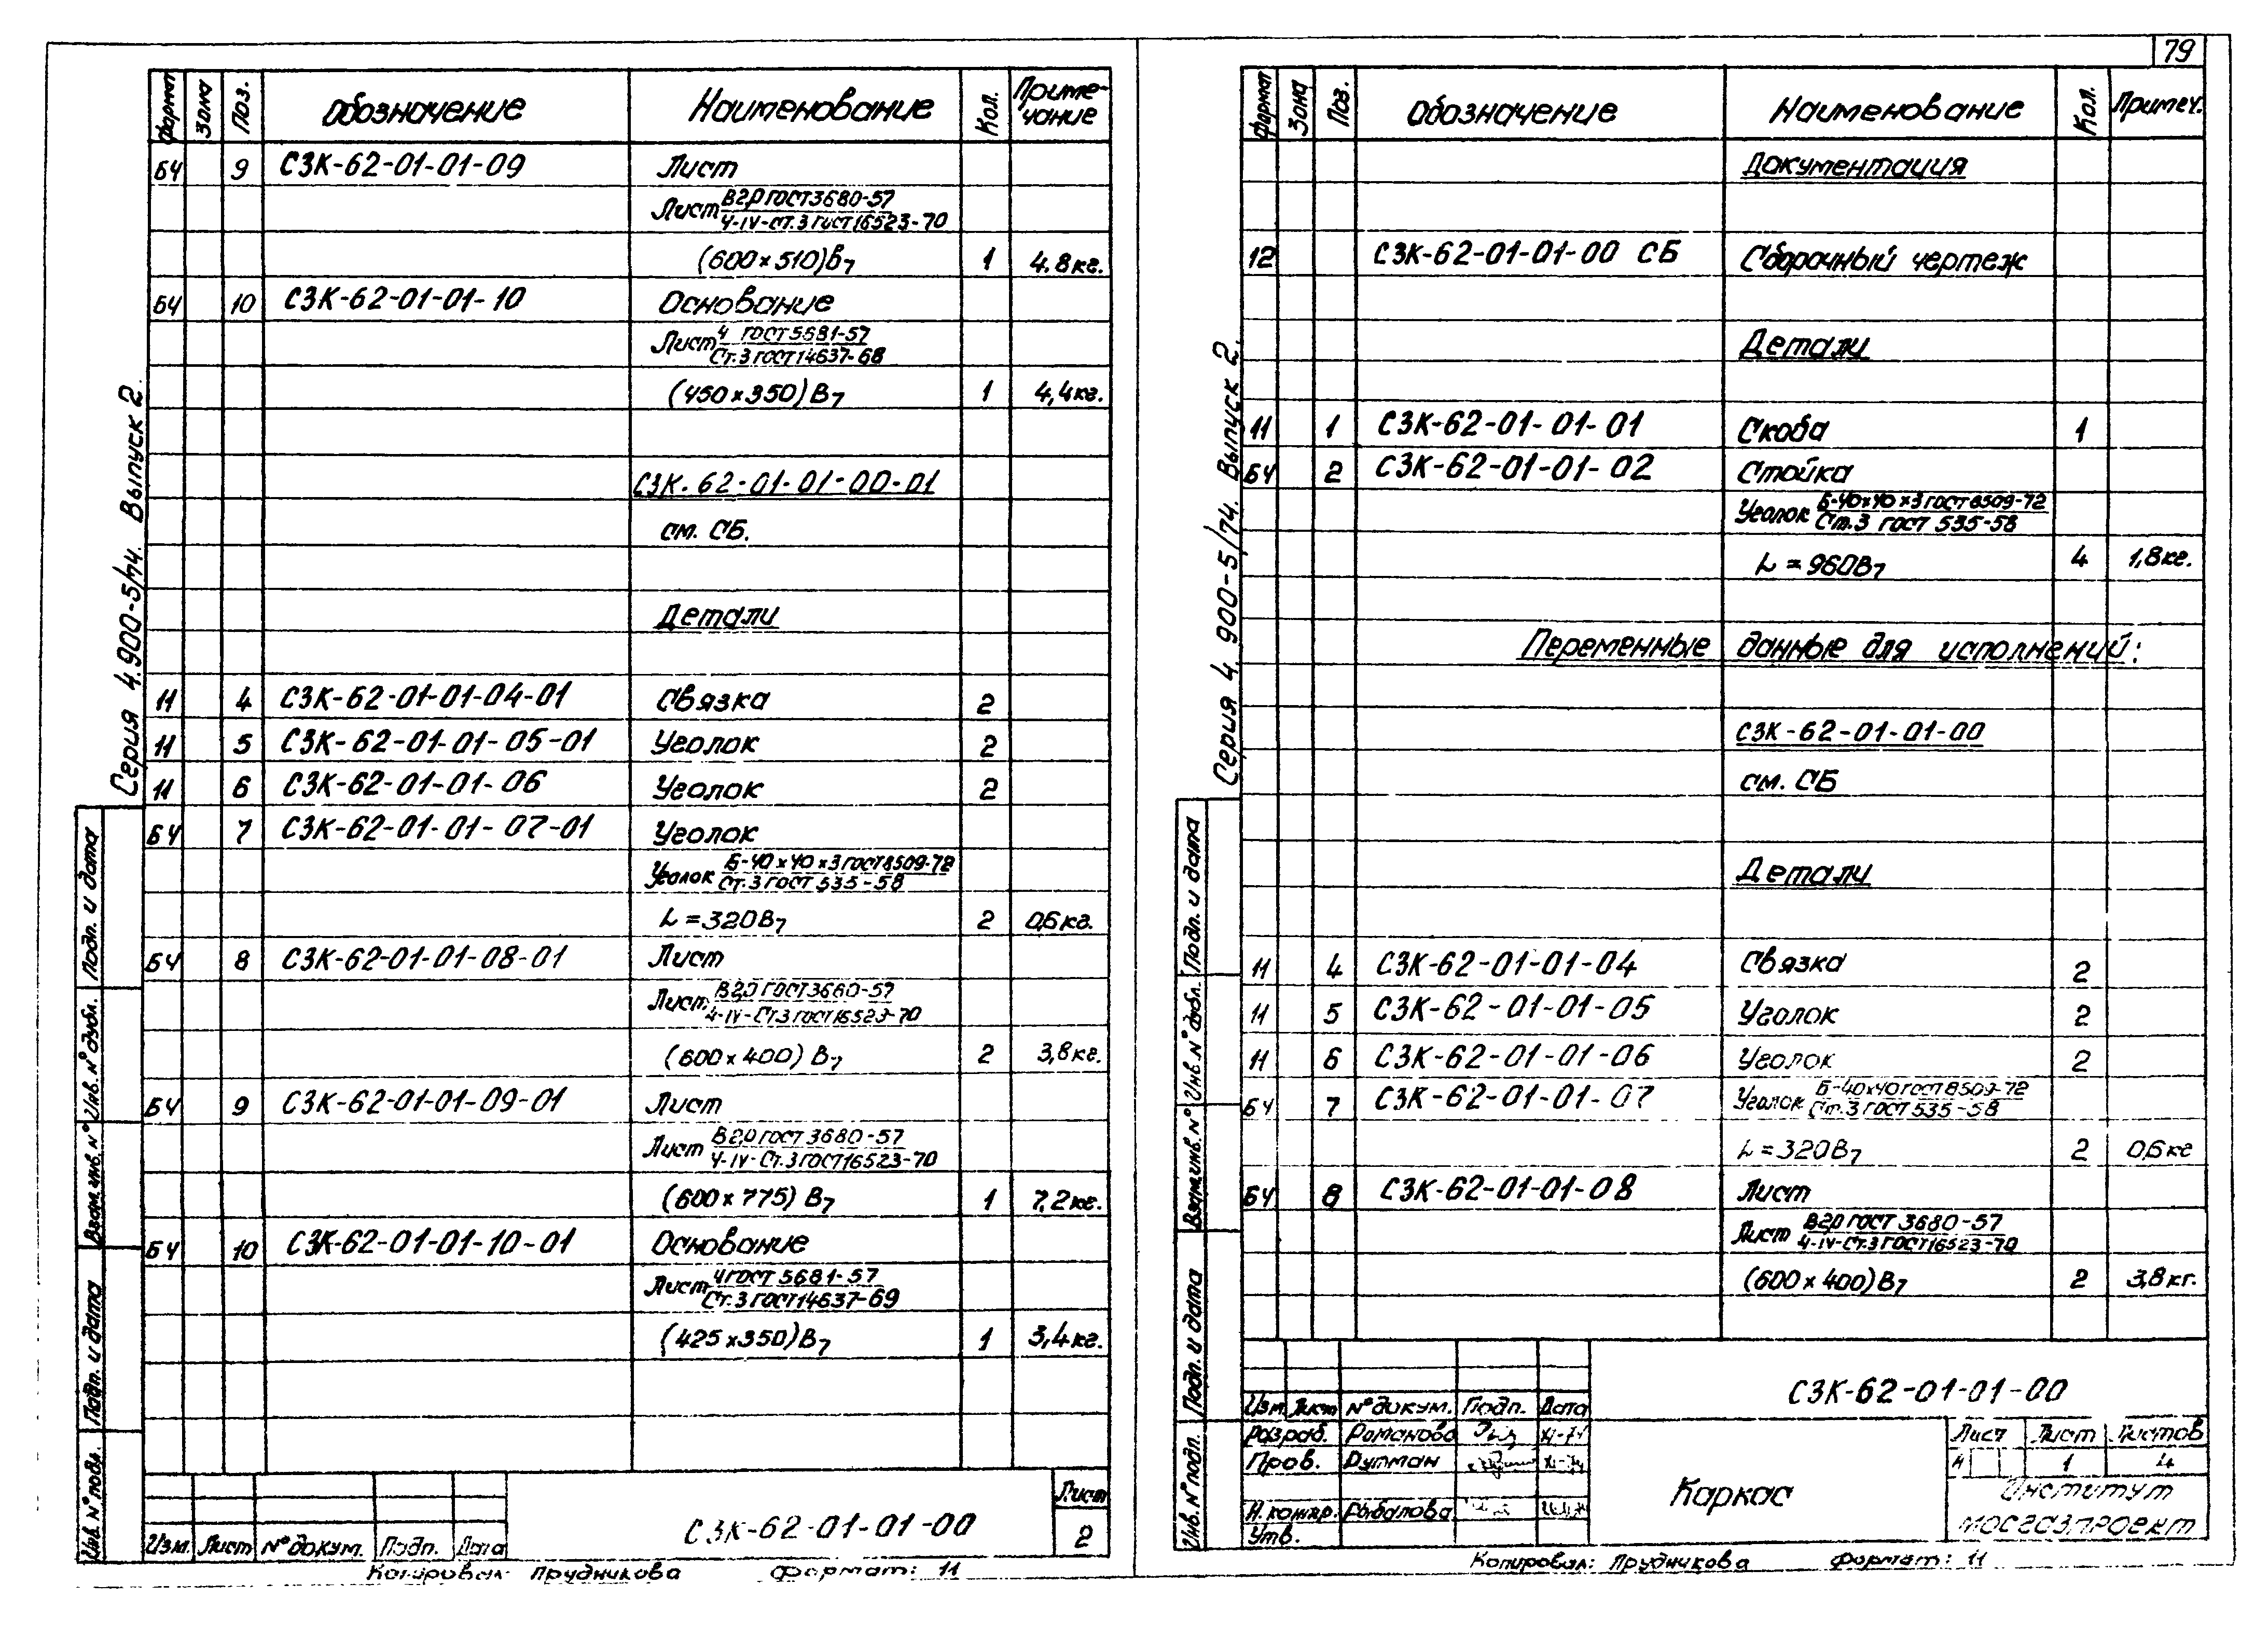 79
Формат Зона Поз. Обозначение Наименование Кол. Приме-
чание
БЧ 9 СЗК-62-01-01-09 Лист
Лист В2,0 ГОСТ 3680-57
4-IV-Ст.3 ГОСТ 16523-70
(600×510)В7 1 4,8кг.
БЧ 10 СЗК-62-01-01-10 Основание
Лист 4 ГОСТ 5681-57
Ст.3 ГОСТ 14637-68
(450×350)В7 1 4,4кг.
СЗК-62-01-01-00-01
см. СБ.
Детали
11 4 СЗК-62-01-01-04-01 Связка 2
11 5 СЗК-62-01-01-05-01 Уголок 2
11 6 СЗК-62-01-01-06 Уголок 2
БЧ 7 СЗК-62-01-01-07-01 Уголок
Уголок Б-40×40×3 ГОСТ 8509-72
Ст.3 ГОСТ 535-58
L=320В7 2 0,6кг.
БЧ 8 СЗК-62-01-01-08-01 Лист
Лист В2,0 ГОСТ 3680-57
4-IV-Ст.3 ГОСТ 16523-70
(600×400) В7 2 3,8кг.
БЧ 9 СЗК-62-01-01-09-01 Лист
Лист В2,0 ГОСТ 3680-57
4-IV-Ст.3 ГОСТ 16523-70
(600×775) В7 1 7,2кг.
БЧ 10 СЗК-62-01-01-10-01 Основание
Лист 4 ГОСТ 5681-57
Ст.3 ГОСТ 14637-69
(425×350)В7 1 3,4кг.
Серия 4.900-5/74. Выпуск 2.
Подп. и дата
Инв. № дубл.
Взам. инв. №
Подп. и дата
Инв. № подл.
Изм. Лист № докум. Подп. Дата
СЗК-62-01-01-00
Лист
2
Копировал: Прудникова Формат: 11
Формат Зона Поз. Обозначение Наименование Кол. Примеч.
Документация
12 СЗК-62-01-01-00 СБ Сборочный чертеж
Детали
11 1 СЗК-62-01-01-01 Скоба 1
БЧ 2 СЗК-62-01-01-02 Стойка
Уголок Б-40×40×3 ГОСТ 8509-72
Ст.3 ГОСТ 535-58
L=960В7 4 1,8кг.
Переменные данные для исполнений:
СЗК-62-01-01-00
см. СБ
Детали
11 4 СЗК-62-01-01-04 Связка 2
11 5 СЗК-62-01-01-05 Уголок 2
11 6 СЗК-62-01-01-06 Уголок 2
БЧ 7 СЗК-62-01-01-07 Уголок Б-40×40 ГОСТ 8509-72
Ст.3 ГОСТ 535-58
L=320В7 2 0,6кг
БЧ 8 СЗК-62-01-01-08 Лист
Лист В2,0 ГОСТ 3680-57
4-IV-Ст.3 ГОСТ 16523-70
(600×400)В7 2 3,8кг.
Серия 4.900-5/74. Выпуск 2.
Подп. и дата
Инв. № дубл.
Взам. инв. №
Подп. и дата
Инв. № подл.
СЗК-62-01-01-00
Изм. Лист № докум. Подп. Дата
Разраб. Романова XI-74
Пров. Дупман XI-74
Н. контр. Рыбалова
Утв.
Каркас
Лист Лист Листов
И 1 4
Институт
МОСГАЗПРОЕКТ
Копировал: Прудникова Формат: 11